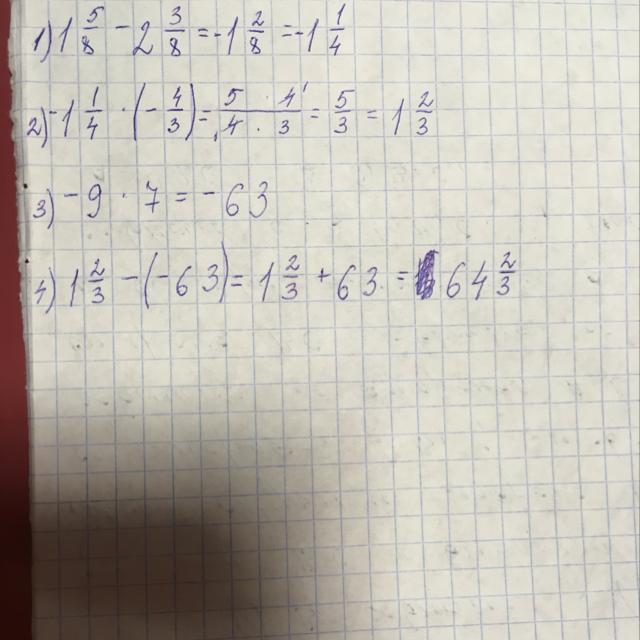 1) 1 5/8 - 2 3/8 = -1 2/8 = -1 1/4
2) -1 1/4 · (- 4/3) = 5 · 4 / 4 · 3 = 5/3 = 1 2/3
3) -9 · 7 = -63
4) 1 2/3 - (-63) = 1 2/3 + 63 = 64 2/3